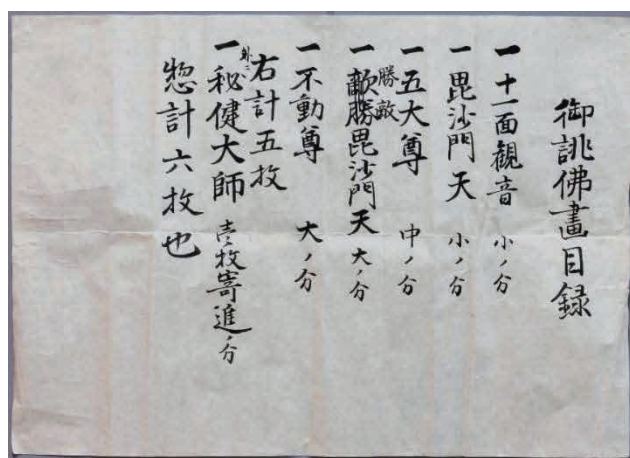 御誂佛畫目録
一十一面観音 小ノ分
一毘沙門天 小ノ分
一五大尊 中ノ分
勝敵
一敵勝毘沙門天 大ノ分
一不動尊 大ノ分
右計五枚
外ニ
一秘健大師 壱枚寄進ノ分
惣計六枚也